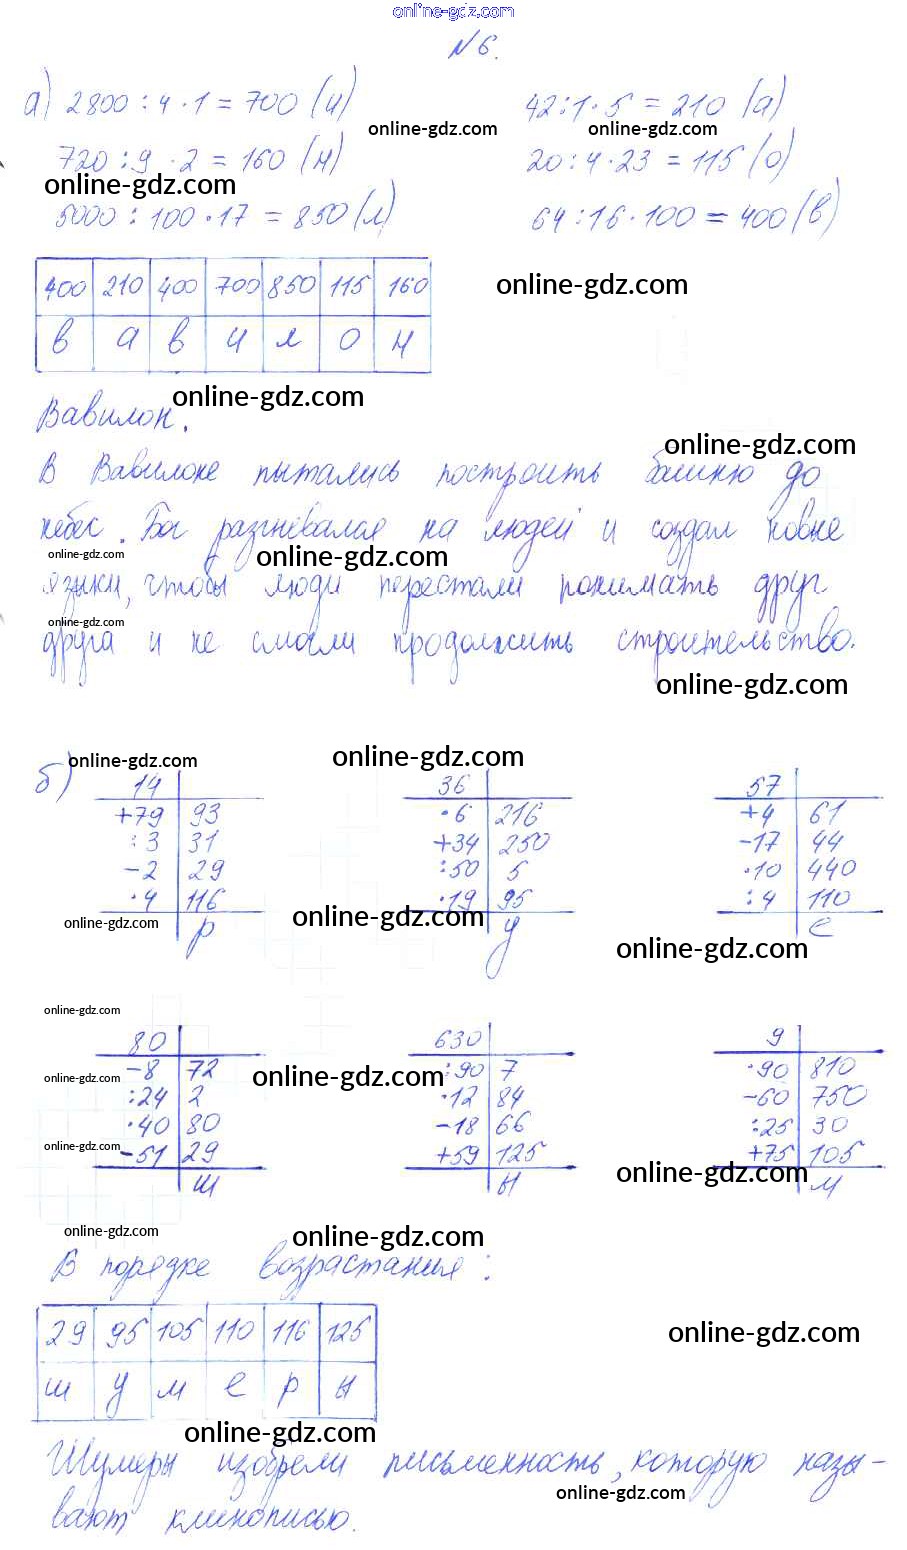 online-gdz.com
№ 6.
а) 2800 : 4 · 1 = 700 (и) 42 : 1 · 5 = 210 (а)
online-gdz.com online-gdz.com
720 : 9 · 2 = 160 (н) 20 : 4 · 23 = 115 (о)
online-gdz.com
5000 : 100 · 17 = 850 (л) 64 : 16 · 100 = 400 (в)
400 210 400 700 850 115 160
online-gdz.com
в а в и л о н
online-gdz.com
Вавилон.
online-gdz.com
В Вавилоне пытались построить башню до
небес. Бог разгневался на людей и создал новые
online-gdz.com online-gdz.com
языки, чтобы люди перестали понимать друг
online-gdz.com
друга и не смогли продолжить строительство.
online-gdz.com
б) online-gdz.com online-gdz.com
14 36 57
+79 93 ·6 216 +4 61
:3 31 +34 250 -17 44
-2 29 :50 5 ·10 440
·4 116 ·19 95 :4 110
online-gdz.com online-gdz.com
р у е
online-gdz.com
online-gdz.com
80 630 9
-8 72 :90 7 ·90 810
online-gdz.com online-gdz.com
:24 2 ·12 84 -60 750
·40 80 -18 66 :25 30
online-gdz.com
-51 29 +59 125 +75 105
online-gdz.com
ш ы м
online-gdz.com online-gdz.com
В порядке возрастания:
29 95 105 110 116 125
online-gdz.com
ш у м е р ы
online-gdz.com
Шумеры изобрели письменность, которую назы-
online-gdz.com
вают клинописью.